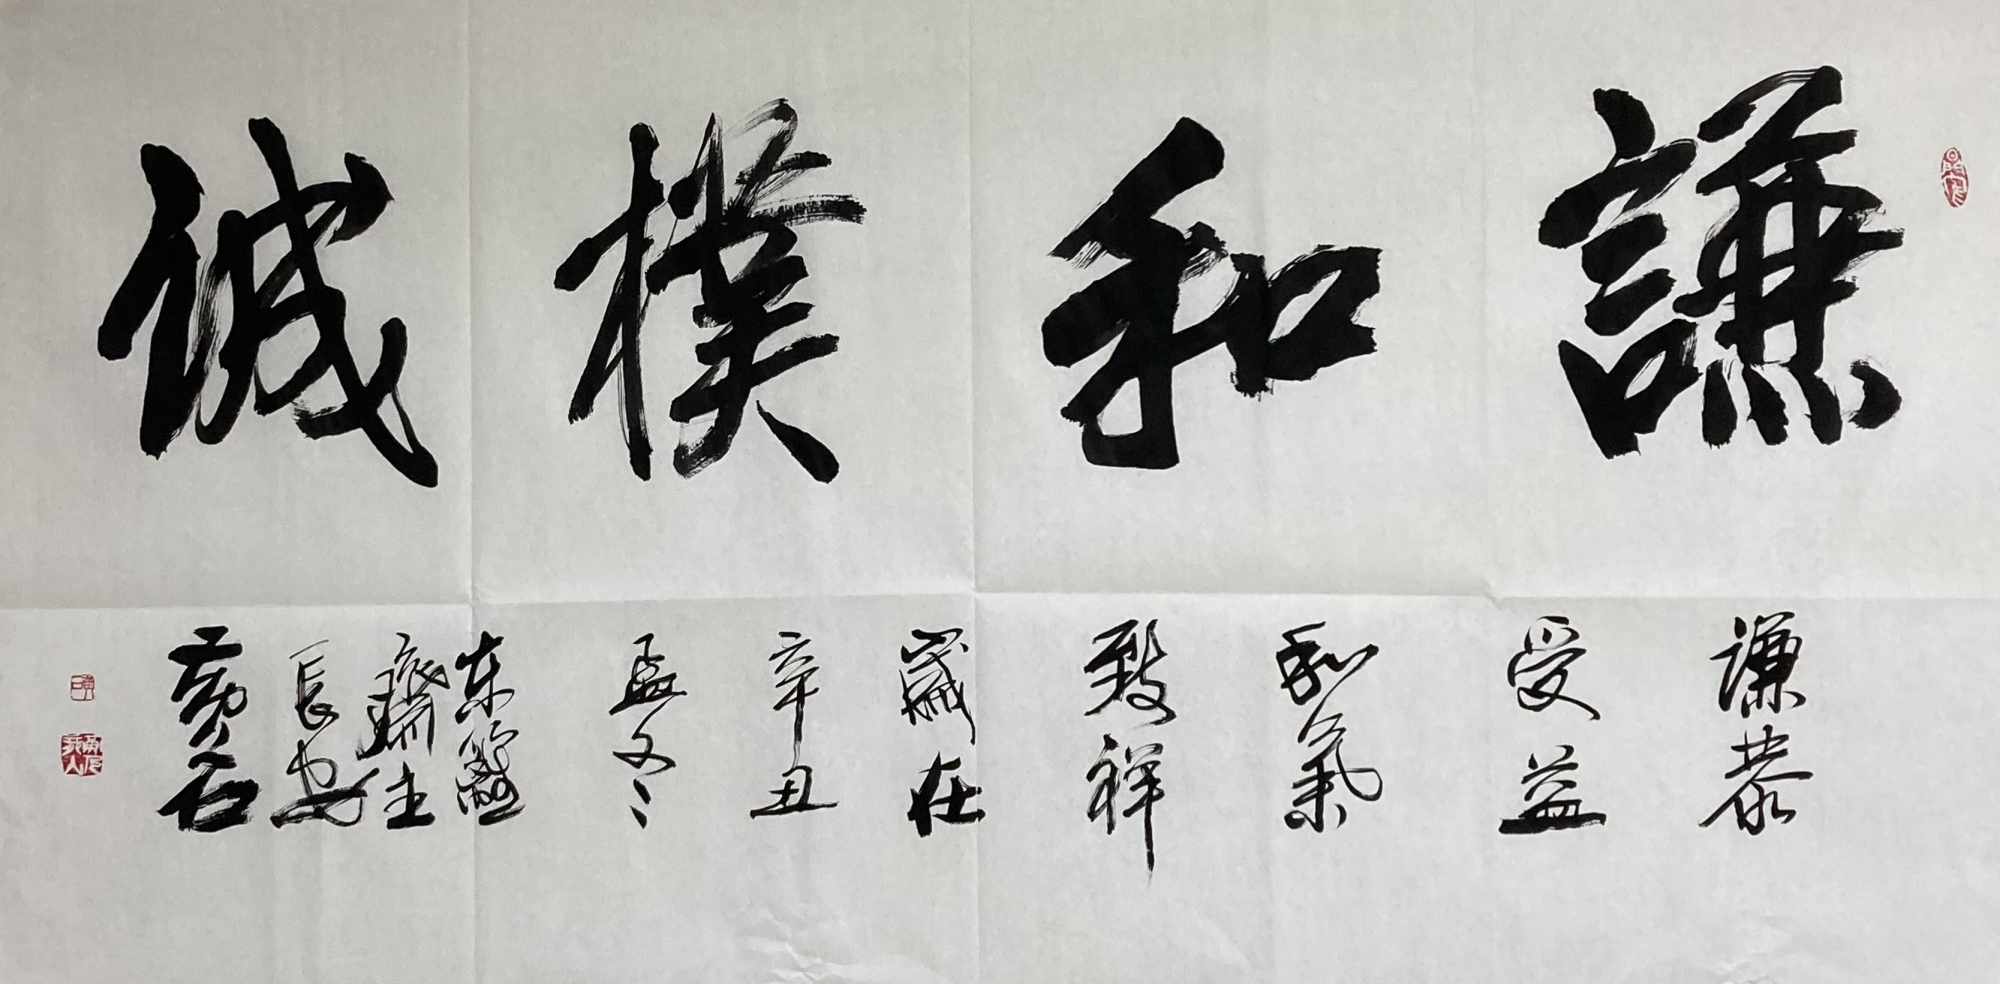 謙和樸誠
謙恭
受益
和氣
致祥
歲在
辛丑
孟冬
东篱
齋主
長安
黄石